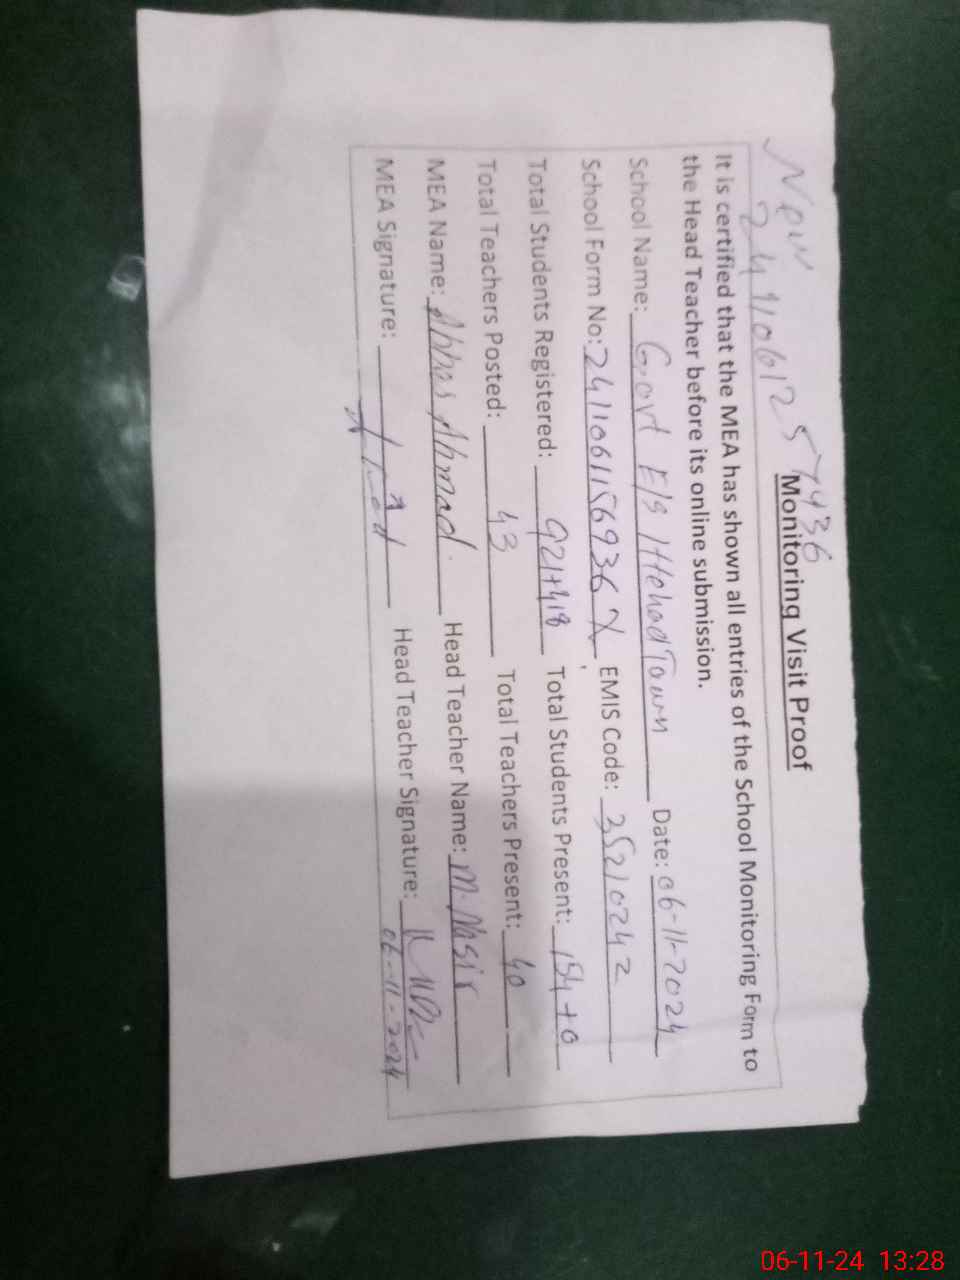 New
2411061257436
Monitoring Visit Proof
It is certified that the MEA has shown all entries of the School Monitoring Form to
the Head Teacher before its online submission.
School Name: Govt E/S Ittehad Town Date: 06-11-2024
School Form No: 2411061156936 X EMIS Code: 35210242
Total Students Registered: 921+418 Total Students Present: 154+0
Total Teachers Posted: 43 Total Teachers Present: 40
MEA Name: Abbas Ahmad Head Teacher Name: M. Nasir
MEA Signature: Head Teacher Signature:
06-11-2024
06-11-24 13:28